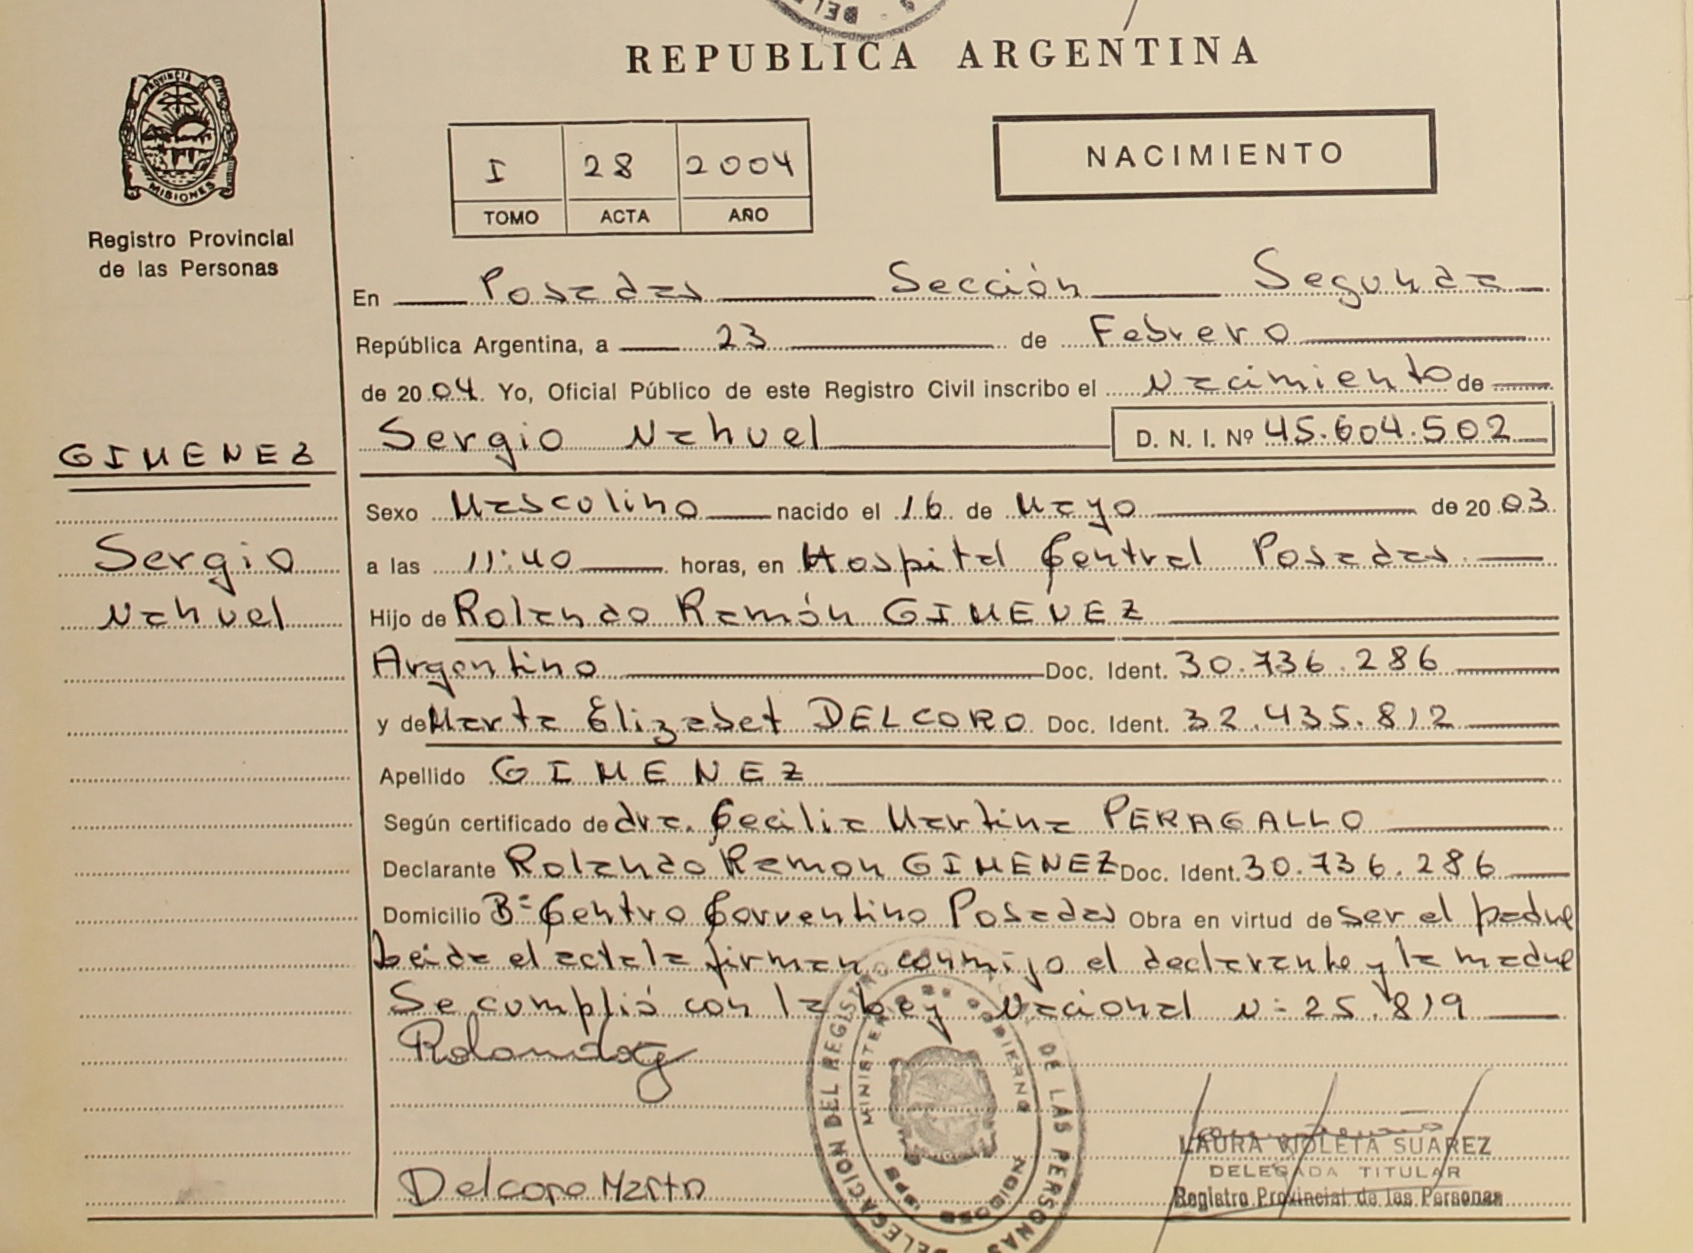 REPUBLICA ARGENTINA
PROVINCIA DE
MISIONES
Registro Provincial
de las Personas
I 28 2004
TOMO ACTA AÑO
NACIMIENTO
En Posadas Sección Segunda
República Argentina, a 23 de Febrero
de 2004. Yo, Oficial Público de este Registro Civil inscribo el Nacimiento de
Sergio Nahuel D. N. I. Nº 45.604.502
GIMENEZ
Sexo Masculino nacido el 16 de Mayo de 2003
Sergio
a las 11:40 horas, en Hospital Central Posadas
Nahuel
Hijo de Rolando Ramón GIMENEZ
Argentino Doc. Ident. 30.736.286
y de Marta Elizabet DELCORO Doc. Ident. 32.435.812
Apellido GIMENEZ
Según certificado de dra. Cecilia Martina PERAGALLO
Declarante Rolando Ramon GIMENEZ Doc. Ident. 30.736.286
Domicilio Bº Centro Correntino Posadas Obra en virtud de ser el padre
Leida el acta la firman conmigo el declarante y la madre
Se cumplió con la Ley Nacional Nº 25.819
Rolando g
DELEGACION DEL REGISTRO DE LAS PERSONAS
MINISTERIO DE GOBIERNO
Delcoro Marta
LAURA VIOLETA SUAREZ
DELEGADA TITULAR
Registro Provincial de las Personas